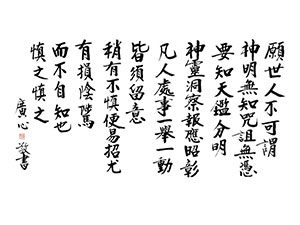 願世人不可謂
神明無知咒詛無憑
要知天鑑分明
神靈洞察報應昭彰
凡人處事一舉一動
皆須留意
稍有不慎便易招尤
有損陰騭
而不自知也
慎之慎之
廣心敬書